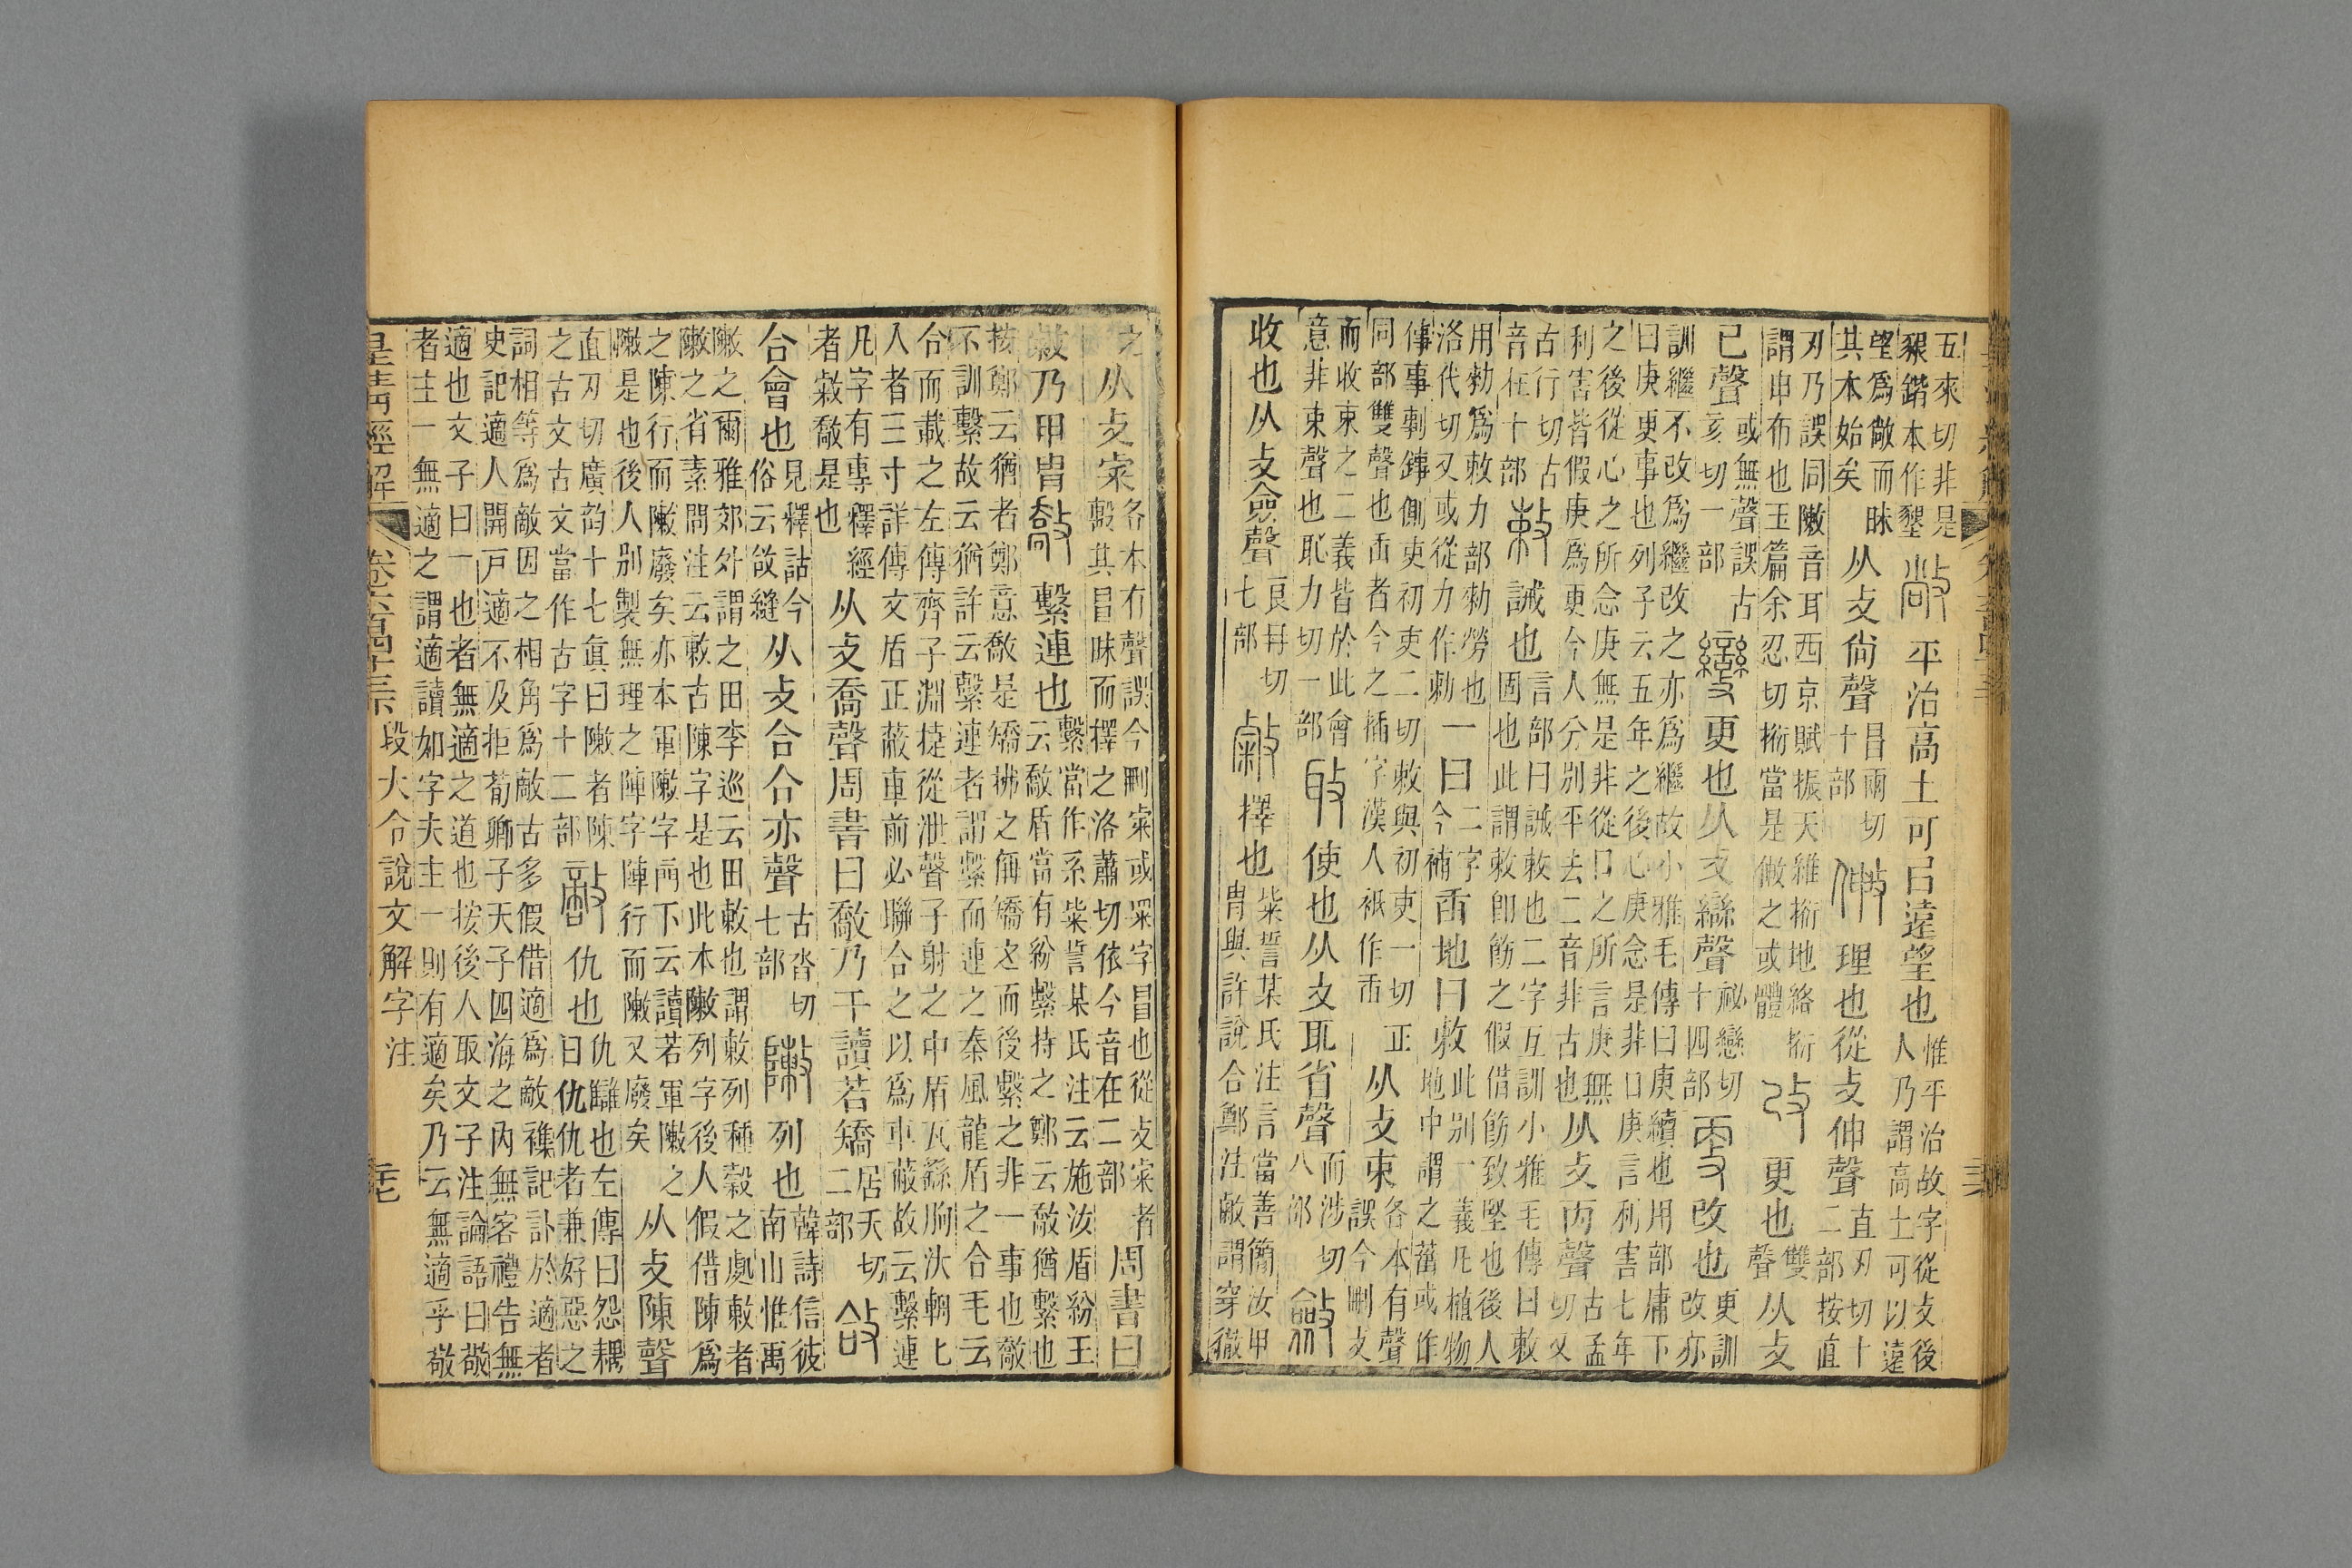 五來切非是豤鍇本作墾敞平治高土可㠯遠望也惟平治故字從攴後人乃謂高土可以遠
望爲敞而昧其本始矣从攴尙聲昌兩切十部㪆理也從攴伸聲直刃切十二部按直
刃乃誤同敶音耳西京賦振天維掁地絡掁謂申布也玉篇余忍切掁當是㪆之或體改更也雙聲从攴
己聲或無聲誤古亥切一部變更也从攴䜌聲祕戀切十四部更改也更訓改亦
訓繼不改爲繼改之亦爲繼故小雅毛傳曰庚續也用部庸下曰庚更事也列子云五年之後心庚念是非口庚言利害七年
之後從心之所念庚無是非從口之所言庚無利害皆假庚爲更今人分別平去二音非古也从攴丙聲古孟切又
古行切古音在十部敕誡也言部曰誡敕也二字互訓小雅毛傳曰敕固也此謂敕卽飭之假借飭致堅也後人
用勑爲敕力部勑勞也洛代切又或從力作勅一曰二字今補臿地曰敕此別一義凡植物地中謂之菑或作
倳事剚側吏初吏二切敕與初吏一切正同部雙聲也臿者今之插字漢人衹作臿从攴束各本有聲誤今刪攴
而收束之二義皆於此會意非束聲也恥力切一部使也从攴耴省聲而涉切八部斂
收也从攴僉聲良冉切七部敹擇也柴誓某氏注言當善簡汝甲冑與許說合鄭注敵謂穿徹
之从攴㝥各本有聲誤今刪㝥或罙字冒也從攴㝥者其冒昧而擇之洛蕭切依今音在二部周書曰
敹乃甲冑敿繫連也繫當作系柴誓某氏注云施汝盾紛王云敿盾當有紛繫持之鄭云敿猶繫也
按鄭云猶者鄭意敿是矯拂之偁矯之而後繫之非一事也敿不訓繫故云猶許云繫連者謂繫而連之秦風龍盾之合毛云
合而載之左傳齊子淵捷從泄聲子射之中盾瓦繇朐汏輈匕入者三寸詳傳文盾正蔽車前必聯合之以爲車蔽故云繫連
凡字有專釋經者敹敿是也从攴喬聲周書曰敿乃干讀若矯居夭切二部敆
合會也見釋詁今俗云敆縫从攴合合亦聲古沓切七部敶列也韓詩信彼南山惟禹
敶之爾雅郊外謂之田李巡云田敕也謂敕列種穀之處敕者敶之省素問注云敕古陳字是也此本敶列字後人假借陳爲
之陳行而敶廢矣亦本軍敶字雨下云讀若軍敶之敶是也後人別製無理之陣字陣行而敶又廢矣从攴陳聲
直刃切廣韵十七眞曰敶者陳之古文古文當作古字十二部敵仇也仇讎也左傳曰怨耦曰仇仇者兼好惡之
詞相等爲敵因之相角爲敵古多假借適爲敵襍記訃於適者史記適人開戶適不及拒荀卿子天子四海之內無客禮告無
適也文子曰一也者無適之道也按後人取文子注論語曰敬者主一無適之謂適讀如字夫主一則有適矣乃云無適乎敬
皇淸經解 卷六百四十三 段大令說文解字注 毛